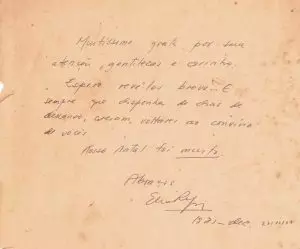 Muitíssimo grato por sua
atenção, gentilezas e carinho.
Espero revê-los breve. E
sempre que disponha de dias de
descanso, creiam, voltarei ao convívio
de vocês
Nosso Natal foi
Abraços
1981 - dez